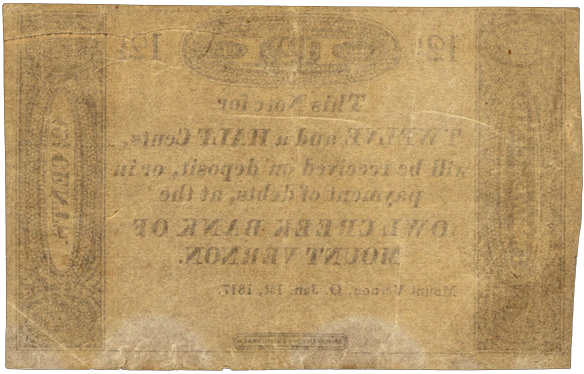 12½ 12½
This Note for
TWELVE and a HALF Cents,
will be received on deposit, or in
payment of debts, at the
OWL CREEK BANK OF
MOUNT VERNON.
Mount Vernon, O. Jan. 1st, 1817.
12½ CENTS.